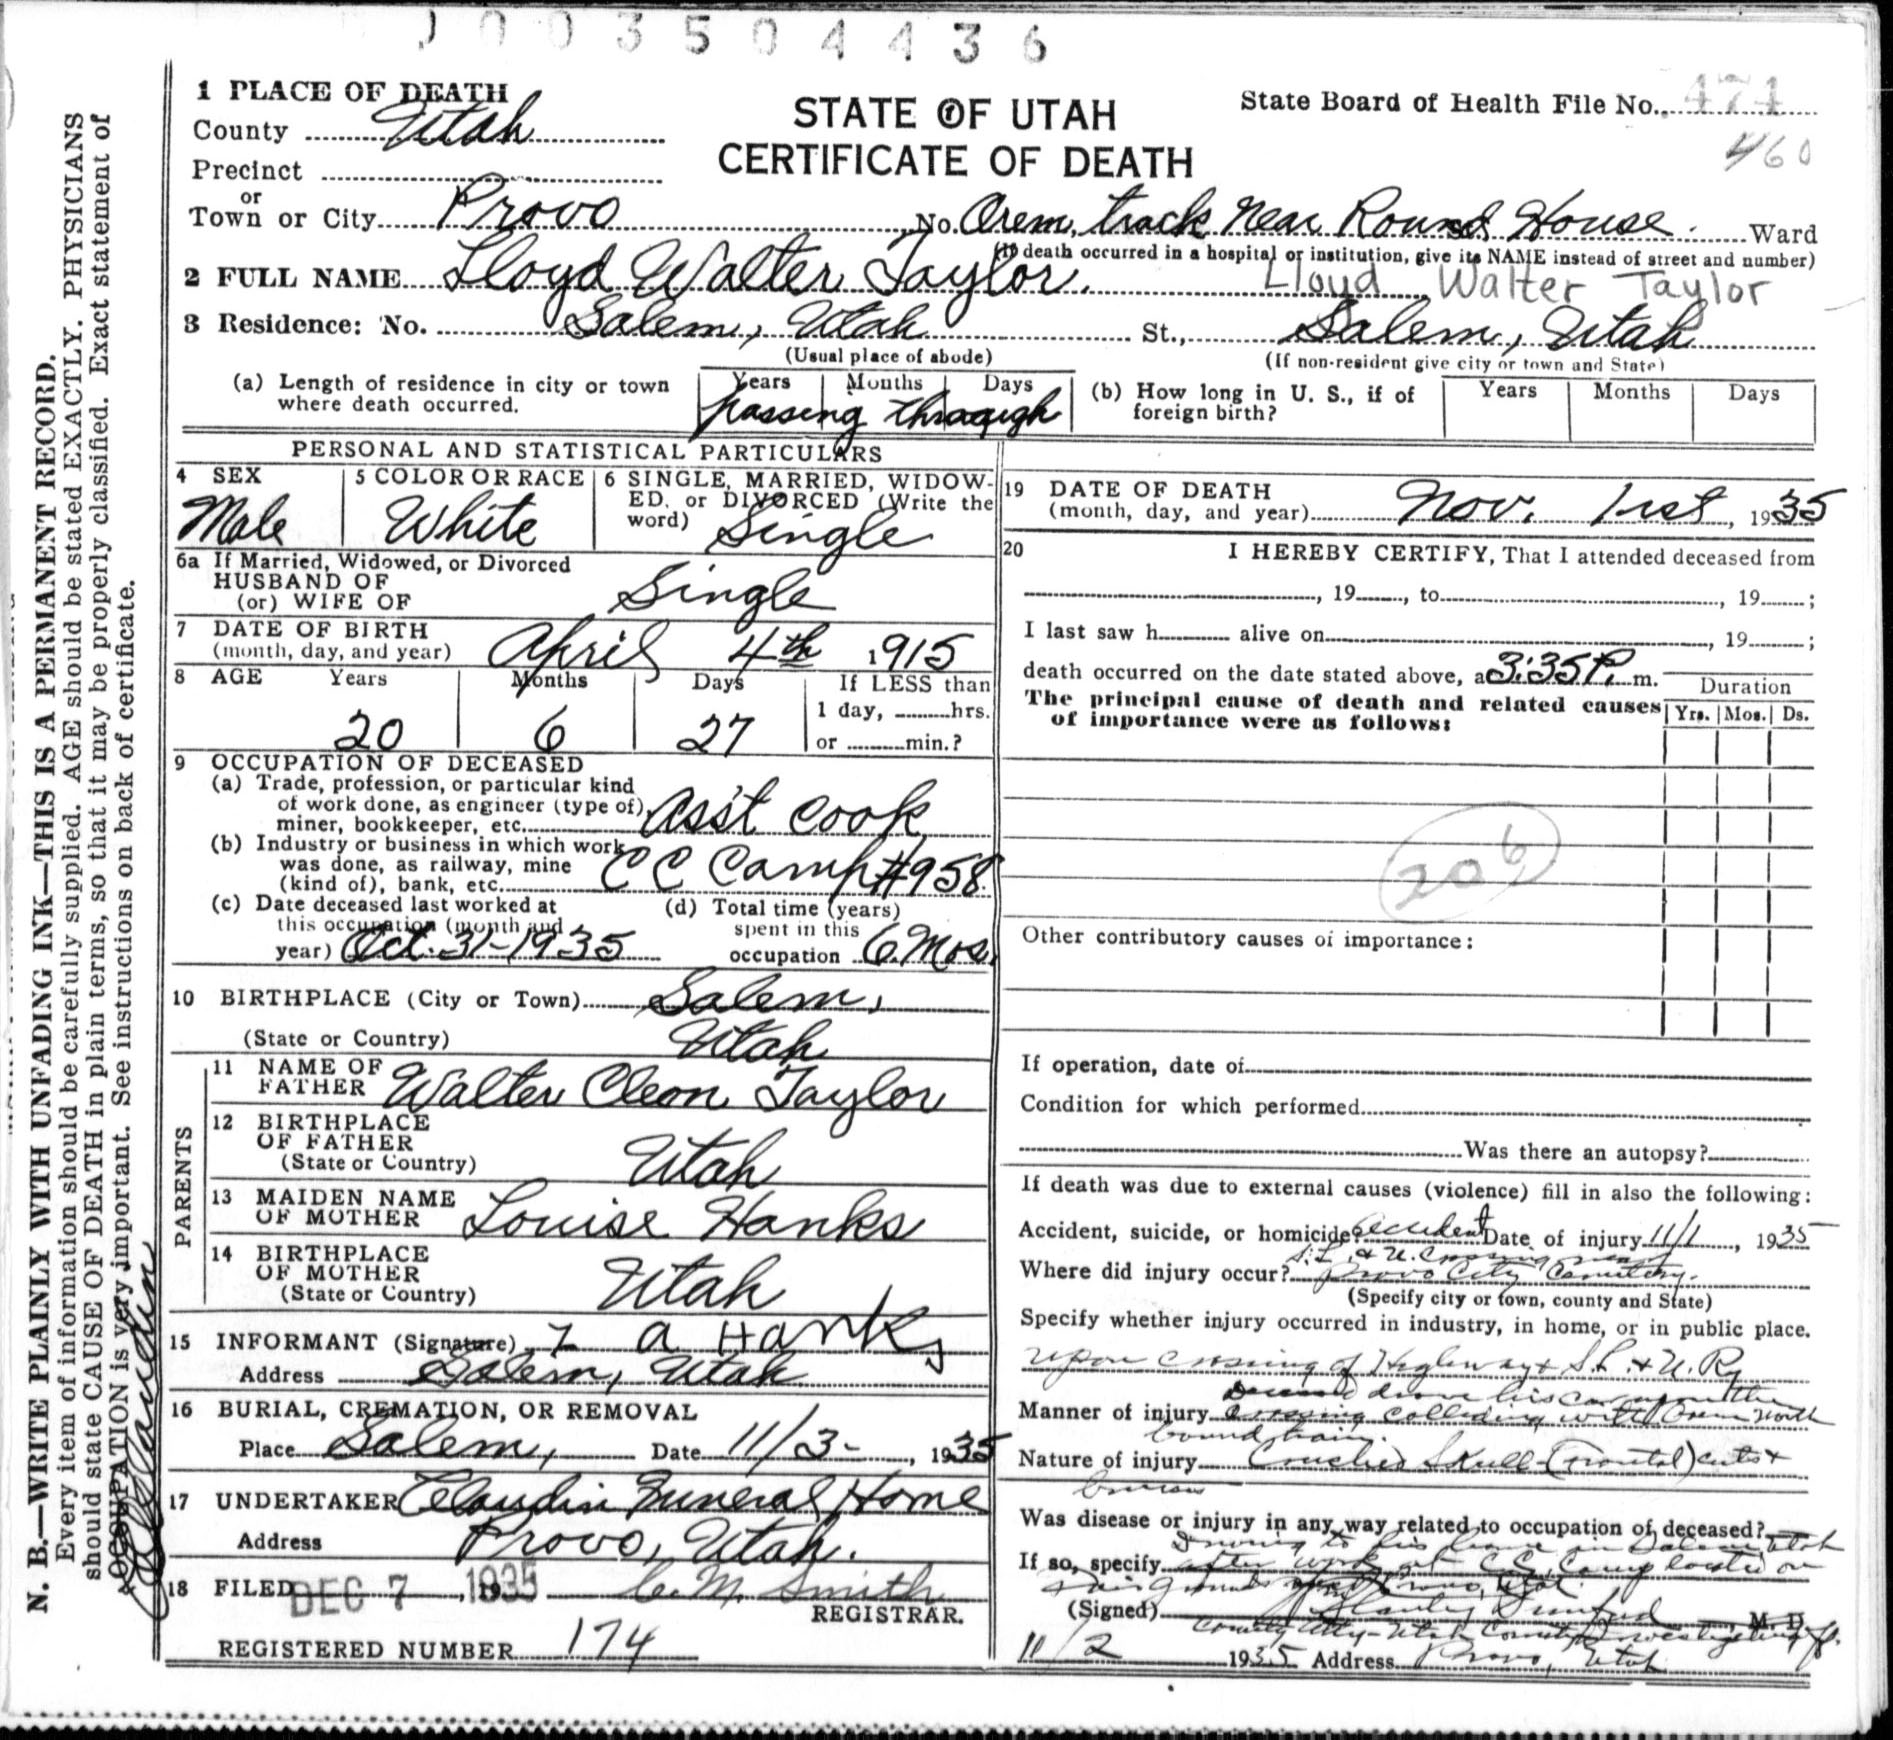 J003504436
1 PLACE OF DEATH
STATE OF UTAH
CERTIFICATE OF DEATH
State Board of Health File No. 474
460
County Utah
Precinct
or
Town or City Provo No. Orem, track near Round House. Ward
(If death occurred in a hospital or institution, give its NAME instead of street and number)
2 FULL NAME Lloyd Walter Taylor. Lloyd Walter Taylor
3 Residence: No. Salem, Utah St., Salem, Utah
(Usual place of abode) (If non-resident give city or town and State)
(a) Length of residence in city or town where death occurred. Years Months Days passing through
(b) How long in U. S., if of foreign birth? Years Months Days
PERSONAL AND STATISTICAL PARTICULARS
4 SEX Male
5 COLOR OR RACE White
6 SINGLE, MARRIED, WIDOW-
ED, or DIVORCED (Write the
word) Single
6a If Married, Widowed, or Divorced
HUSBAND OF
(or) WIFE OF Single
7 DATE OF BIRTH
(month, day, and year) April 4th 1915
8 AGE Years Months Days If LESS than
20 6 27 1 day, hrs.
or min.?
9 OCCUPATION OF DECEASED
(a) Trade, profession, or particular kind
of work done, as engineer (type of),
miner, bookkeeper, etc. Ass't cook
(b) Industry or business in which work
was done, as railway, mine
(kind of), bank, etc. CC Camp #958
(c) Date deceased last worked at
this occupation (month and
year) Oct. 31-1935
(d) Total time (years)
spent in this
occupation 6 Mos.
10 BIRTHPLACE (City or Town) Salem,
(State or Country) Utah
PARENTS
11 NAME OF
FATHER Walter Cleon Taylor
12 BIRTHPLACE
OF FATHER
(State or Country) Utah
13 MAIDEN NAME
OF MOTHER Louise Hanks
14 BIRTHPLACE
OF MOTHER
(State or Country) Utah
15 INFORMANT (Signature) a Hanks
Address Salem, Utah
16 BURIAL, CREMATION, OR REMOVAL
Place Salem, Date 11/3- 1935
17 UNDERTAKER Claudin Funeral Home
Address Provo, Utah.
18 FILED DEC 7 1935 C. M. Smith
REGISTRAR.
REGISTERED NUMBER 174
19 DATE OF DEATH
(month, day, and year) Nov. 1st, 1935
20 I HEREBY CERTIFY, That I attended deceased from
, 19 , to , 19 ;
I last saw h alive on , 19 ;
death occurred on the date stated above, at 3:35 P. m.
The principal cause of death and related causes
of importance were as follows:
Duration
Yrs. Mos. Ds.
206
Other contributory causes of importance:
If operation, date of
Condition for which performed
Was there an autopsy?
If death was due to external causes (violence) fill in also the following:
Accident, suicide, or homicide? Accident Date of injury 11/1, 1935
S.L. & U. Crossing near
Where did injury occur? Provo City Cemetery.
(Specify city or town, county and State)
Specify whether injury occurred in industry, in home, or in public place.
upon crossing of Highway & S.L. & U. Ry
Deceased drove his car upon the
Manner of injury crossing colliding with Orem North
bound train.
Nature of injury Crushed Skull (frontal) cuts &
bruises
Was disease or injury in any way related to occupation of deceased?
Driving to his home in Salem Utah
If so, specify after work at C.C. Camp located on
Fair grounds Provo, Utah.
(Signed) , M. D.
County Atty - Utah County
11/2 1935 Address Provo, Utah
N. B.—WRITE PLAINLY WITH UNFADING INK—THIS IS A PERMANENT RECORD.
Every item of information should be carefully supplied. AGE should be stated EXACTLY. PHYSICIANS
should state CAUSE OF DEATH in plain terms, so that it may be properly classified. Exact statement of
OCCUPATION is very important. See instructions on back of certificate.